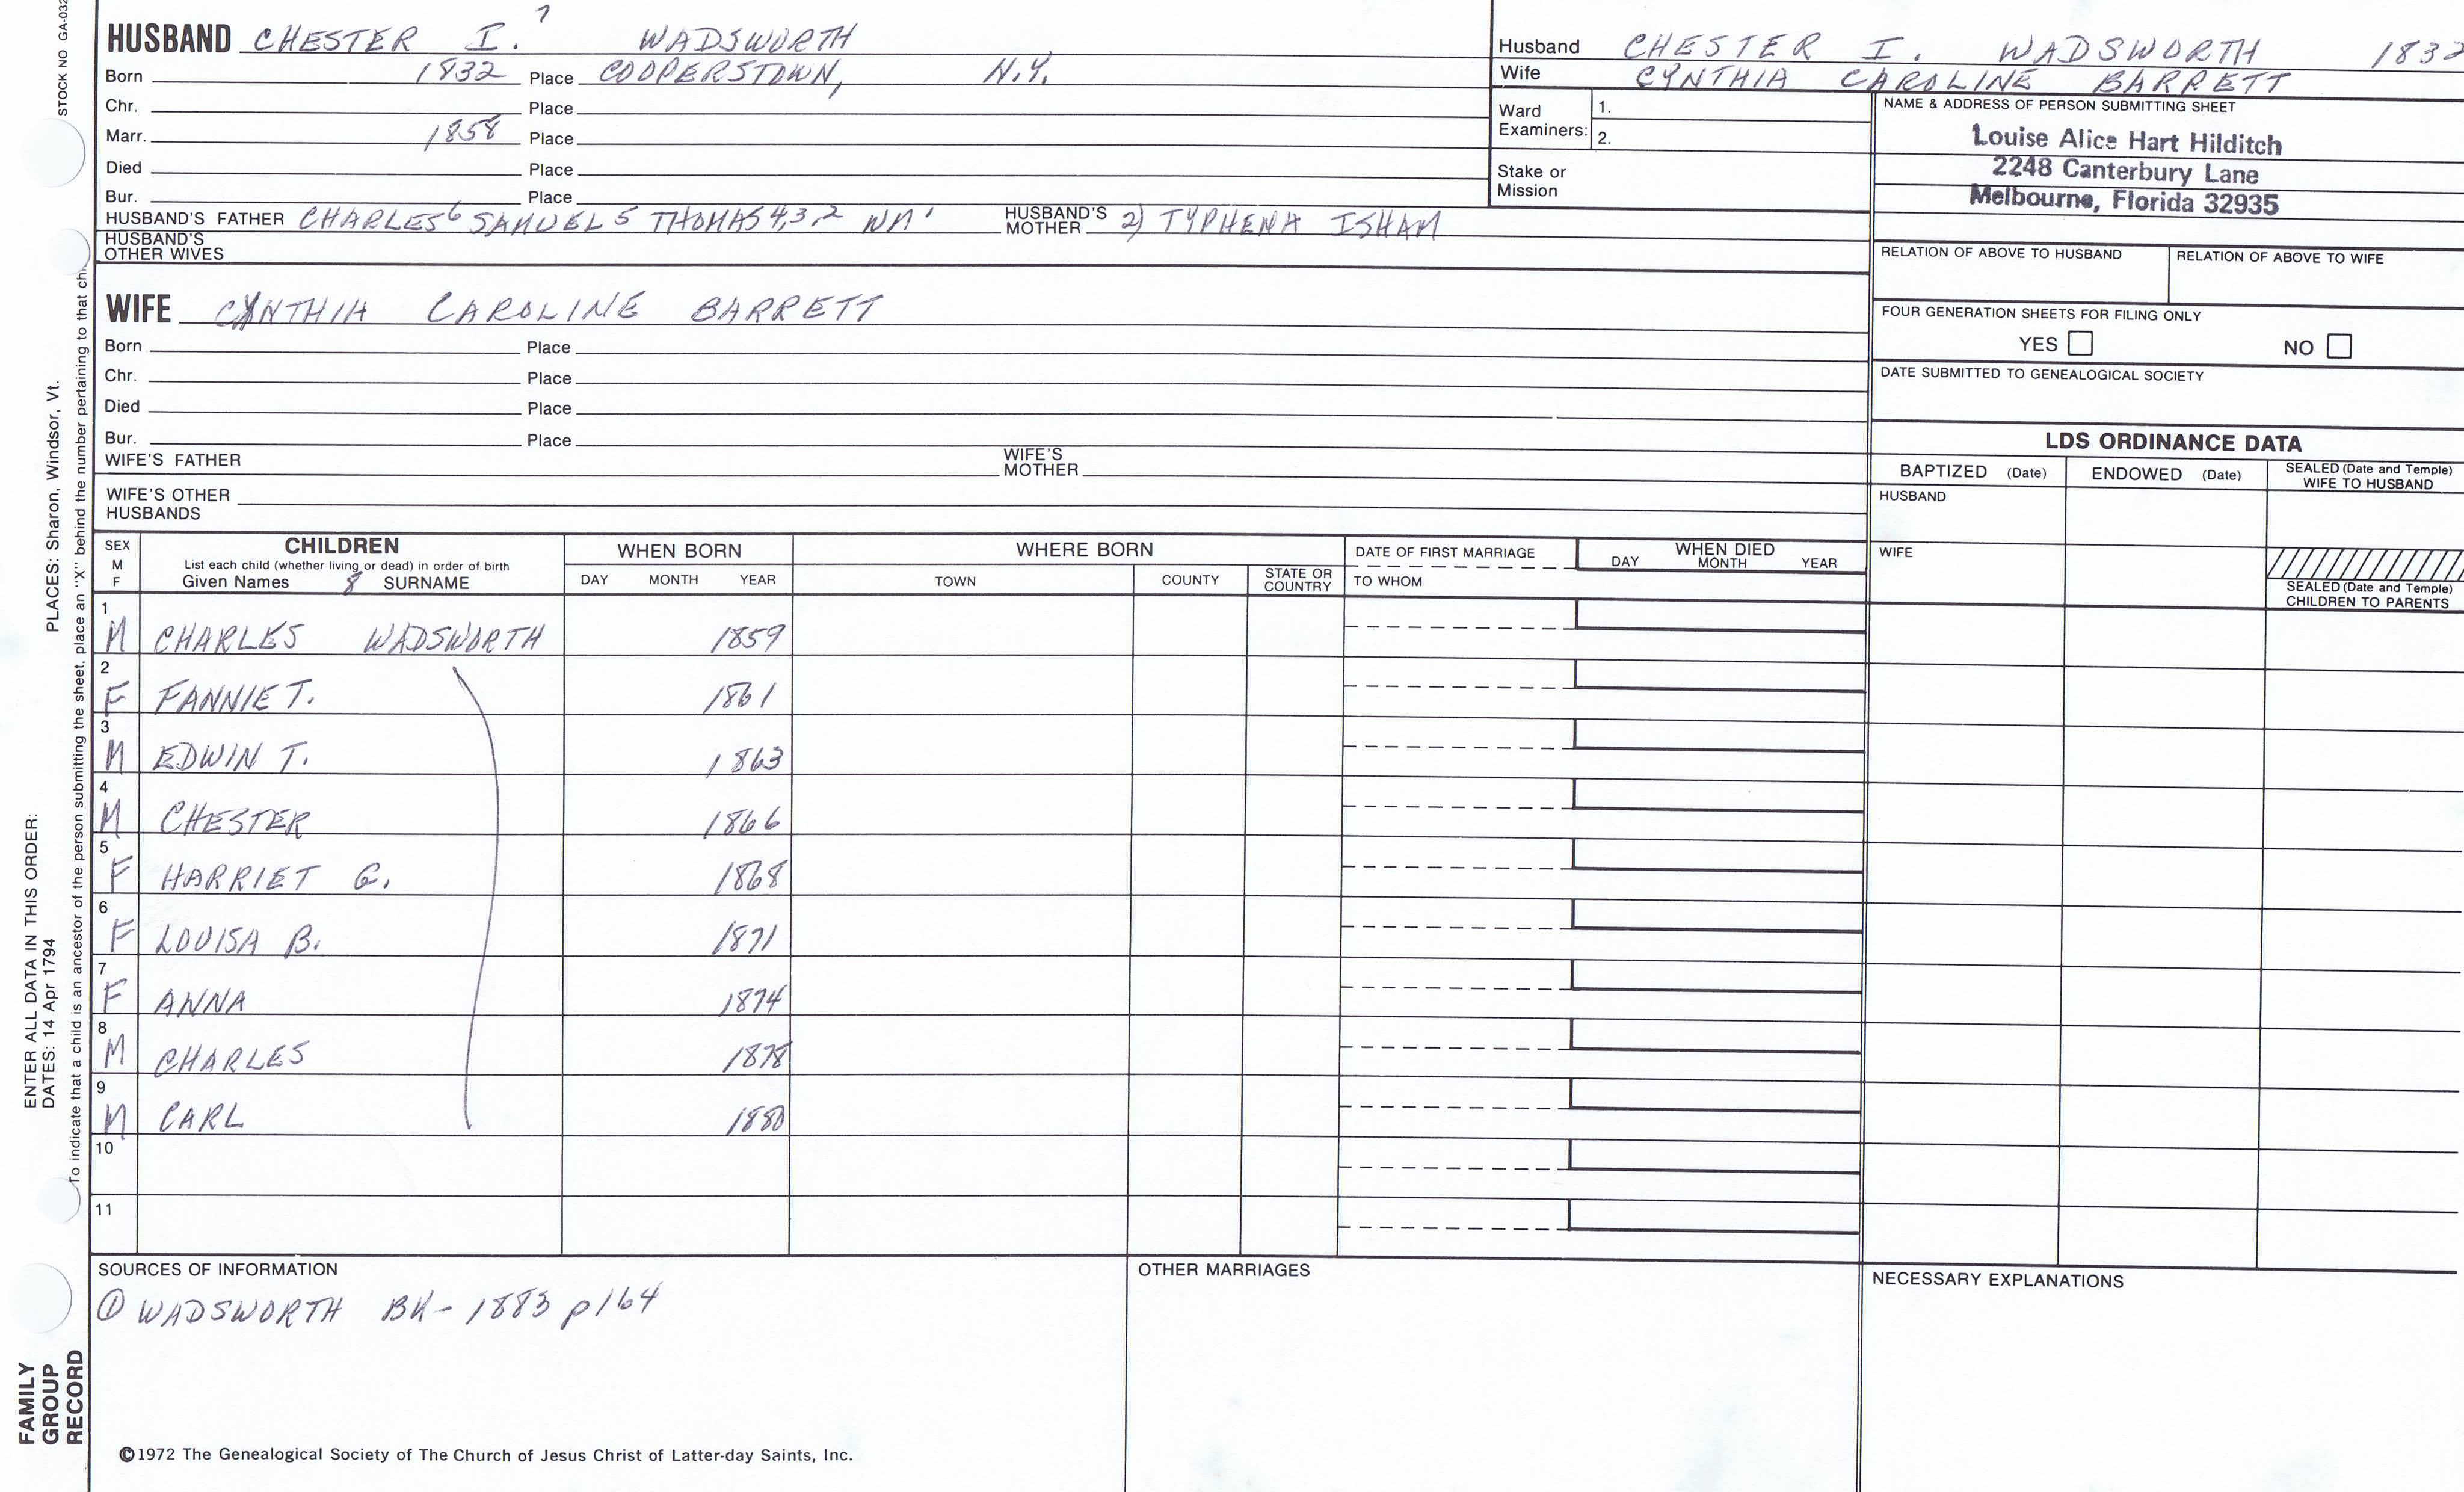 STOCK NO GA-032
PLACES: Sharon, Windsor, Vt.
ENTER ALL DATA IN THIS ORDER:
DATES: 14 Apr 1794
To indicate that a child is an ancestor of the person submitting the sheet, place an "X" behind the number pertaining to that chi
FAMILY
GROUP
RECORD
7
HUSBAND CHESTER I. WADSWORTH
Born 1832 Place COOPERSTOWN, N.Y.
Chr. Place
Marr. 1858 Place
Died Place
Bur. Place
HUSBAND'S FATHER CHARLES6 SAMUEL5 THOMAS4,3,2 WM1 HUSBAND'S MOTHER 2) TYPHENA ISHAM
HUSBAND'S
OTHER WIVES
WIFE CYNTHIA CAROLINE BARRETT
Born Place
Chr. Place
Died Place
Bur. Place
WIFE'S FATHER WIFE'S MOTHER
WIFE'S OTHER
HUSBANDS
Husband CHESTER I. WADSWORTH 1832
Wife CYNTHIA CAROLINE BARRETT
Ward
Examiners: 1.
2.
Stake or
Mission
NAME & ADDRESS OF PERSON SUBMITTING SHEET
Louise Alice Hart Hilditch
2248 Canterbury Lane
Melbourne, Florida 32935
RELATION OF ABOVE TO HUSBAND RELATION OF ABOVE TO WIFE
FOUR GENERATION SHEETS FOR FILING ONLY
YES NO
DATE SUBMITTED TO GENEALOGICAL SOCIETY
LDS ORDINANCE DATA
BAPTIZED (Date) ENDOWED (Date) SEALED (Date and Temple)
WIFE TO HUSBAND
HUSBAND
WIFE
SEALED (Date and Temple)
CHILDREN TO PARENTS
SEX
M
F
CHILDREN
List each child (whether living or dead) in order of birth
Given Names 8 SURNAME
WHEN BORN
DAY MONTH YEAR
WHERE BORN
TOWN COUNTY STATE OR
COUNTRY
DATE OF FIRST MARRIAGE
TO WHOM
WHEN DIED
DAY MONTH YEAR
1 M CHARLES WADSWORTH 1859
2 F FANNIE T. 1861
3 M EDWIN T. 1863
4 M CHESTER 1866
5 F HARRIET G. 1868
6 F LOUISA B. 1871
7 F ANNA 1874
8 M CHARLES 1878
9 M CARL 1880
10
11
SOURCES OF INFORMATION
① WADSWORTH BK- 1883 p164
OTHER MARRIAGES
NECESSARY EXPLANATIONS
©1972 The Genealogical Society of The Church of Jesus Christ of Latter-day Saints, Inc.